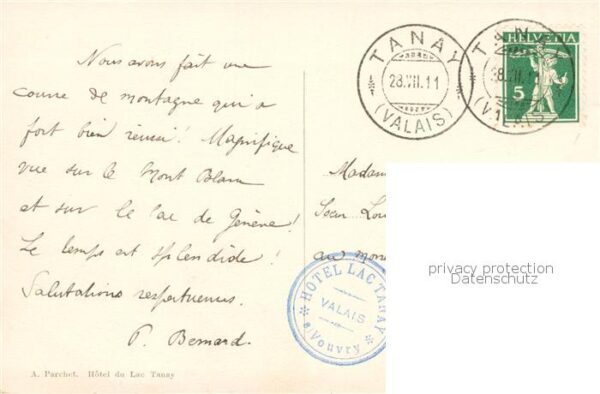 Nous avons fait une
course de montagne qui a
fort bien réussi! Magnifique
vue sur le Mont Blanc
et sur le lac de Genève!
Le temps est splendide!
Salutations respectueuses.
P. Bernard.
A. Parchet. Hôtel du Lac Tanay
TANAY
28.VII.11
(VALAIS)
TANAY
28.VII.11
(VALAIS)
HELVETIA
5
Madam
Sœur Lou
au Mon
HOTEL LAC TANAY
VALAIS
s/Vouvry
privacy protection
Datenschutz